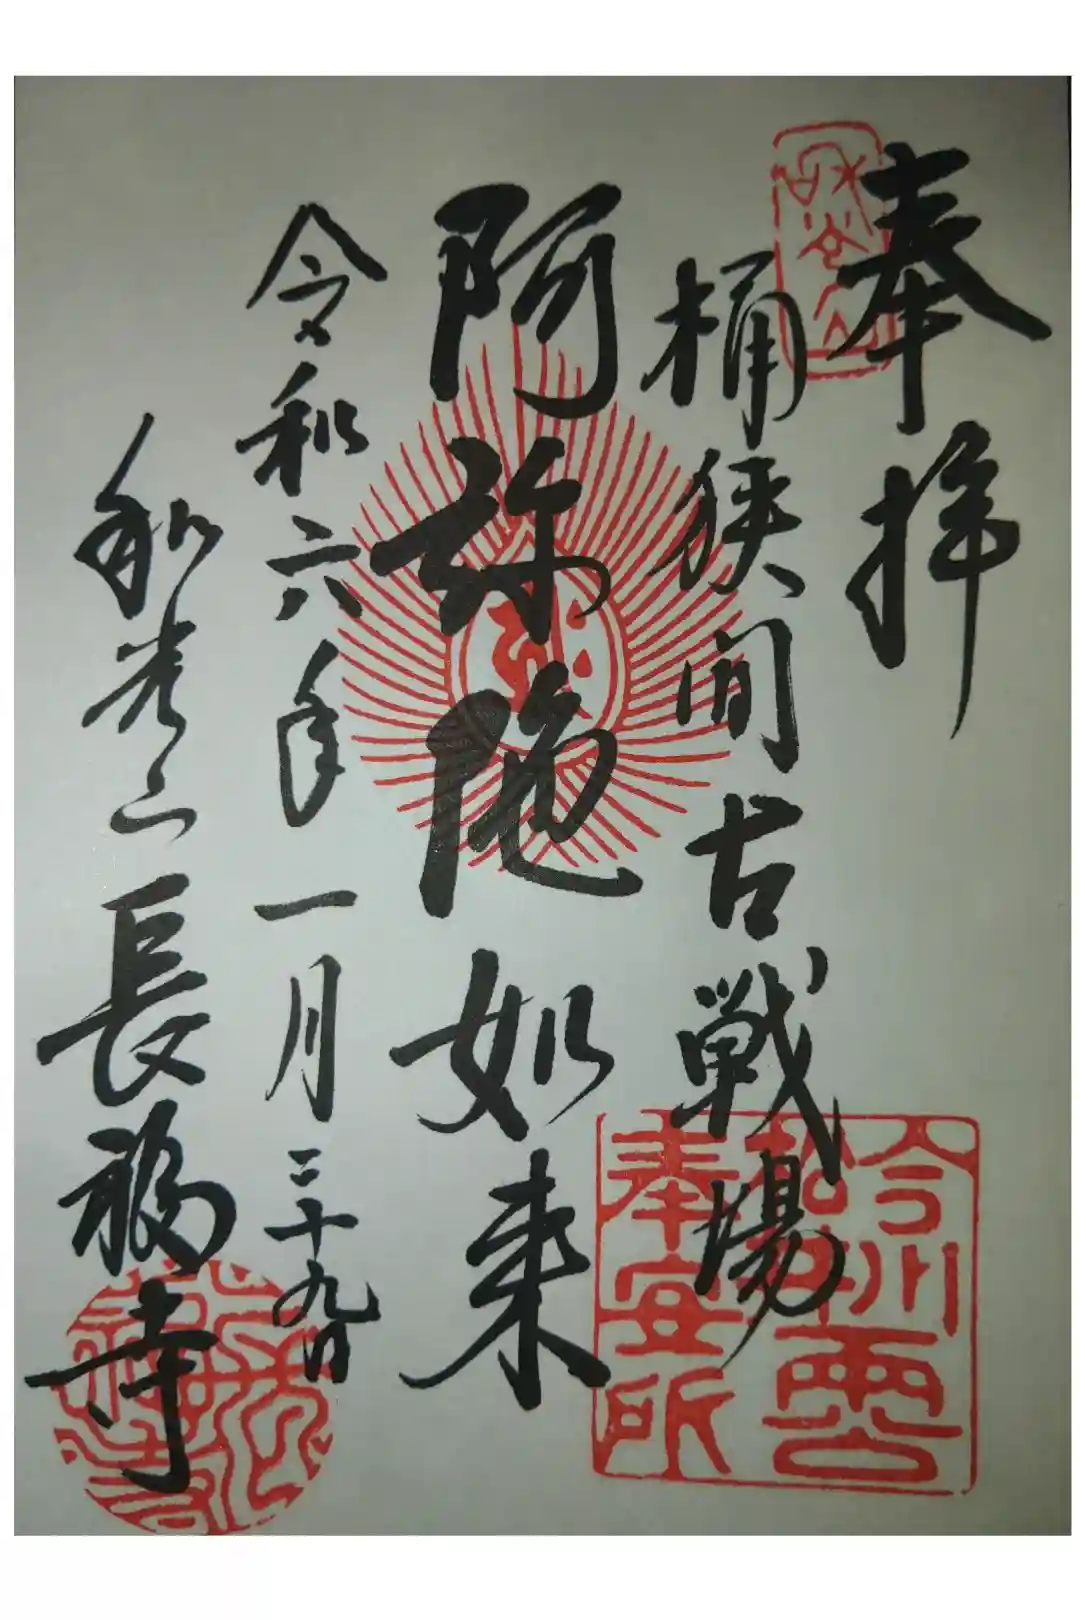 奉拝
桶狭間古戦場
阿弥陀如来
令和六年一月二十九日
和光山長福寺
今川
奉安所